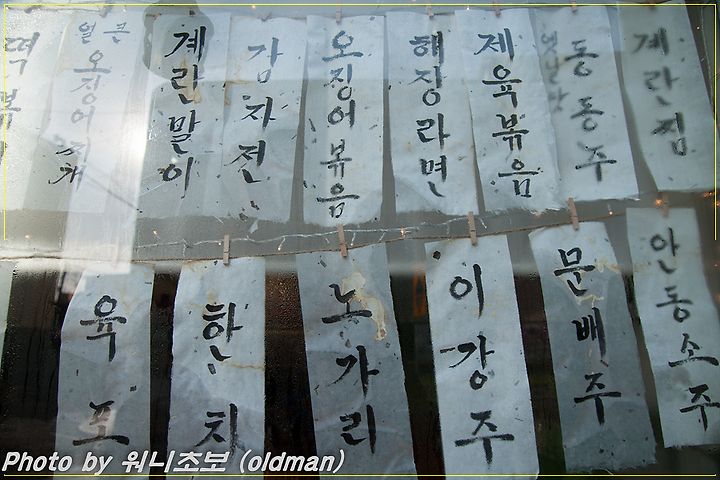 떡볶이
얼큰
오징어찌개
계란말이
감자전
오징어볶음
해장라면
제육볶음
옛날
동동주
계란찜
육포
한치
노가리
이강주
문배주
안동소주
Photo by 워니초보 (oldman)